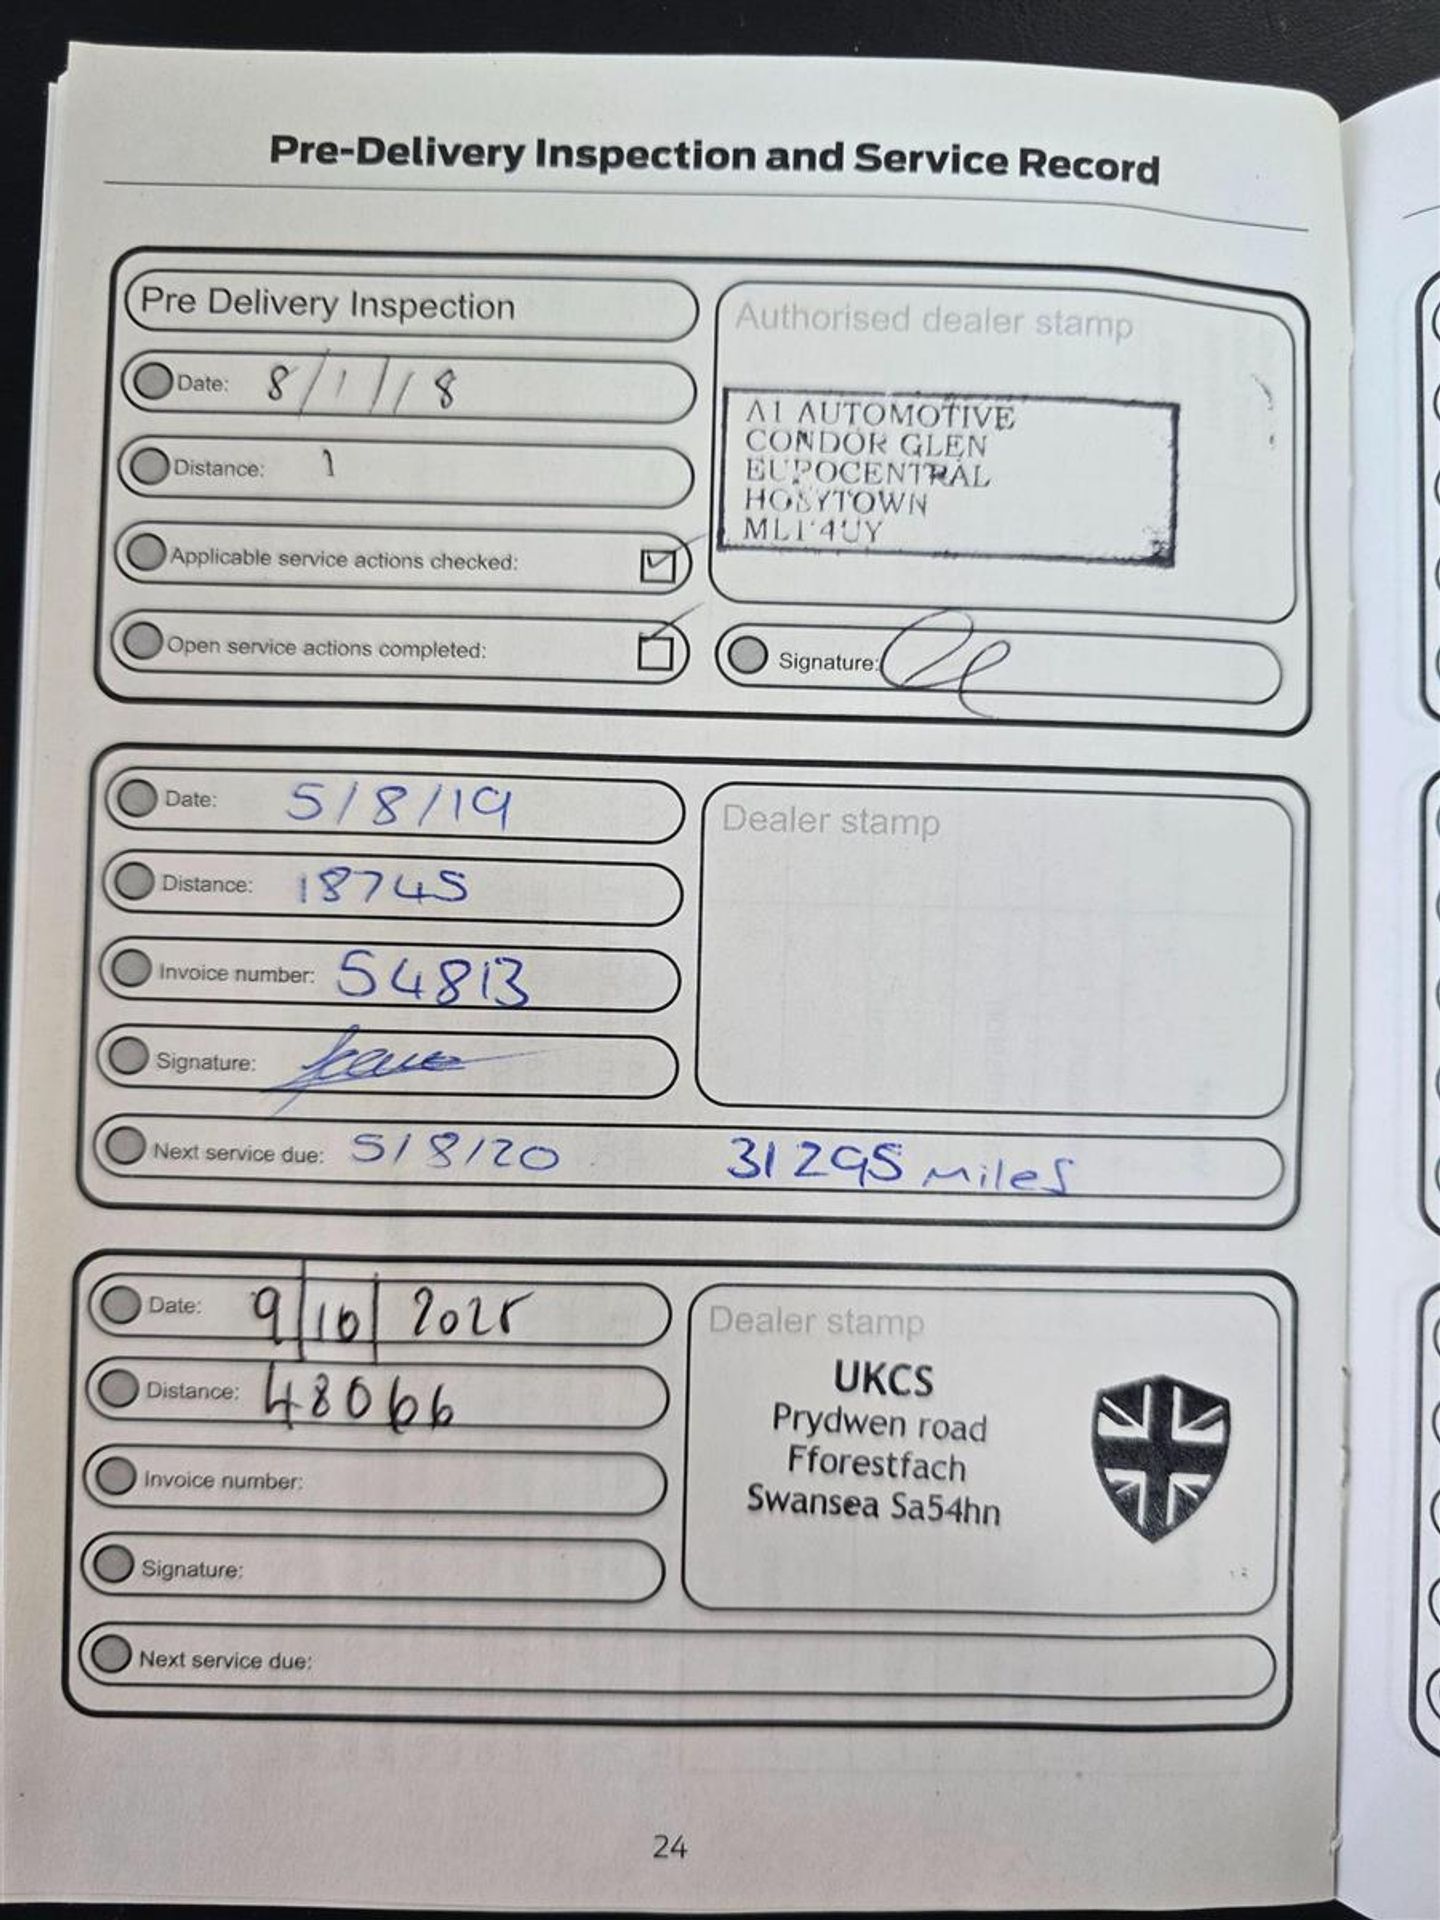 Pre-Delivery Inspection and Service Record
Pre Delivery Inspection
Date: 8/1/18
Distance: 1
Applicable service actions checked:
Open service actions completed:
Authorised dealer stamp
A1 AUTOMOTIVE
CONDOR GLEN
EUROCENTRAL
HOLYTOWN
ML1 4UY
Signature:
Date: 5/8/19
Distance: 18745
Invoice number: 54813
Signature:
Dealer stamp
Next service due: 5/8/20 31295 miles
Date: 9/10/2025
Distance: 48066
Invoice number:
Signature:
Dealer stamp
UKCS
Prydwen road
Fforestfach
Swansea Sa54hn
Next service due:
24